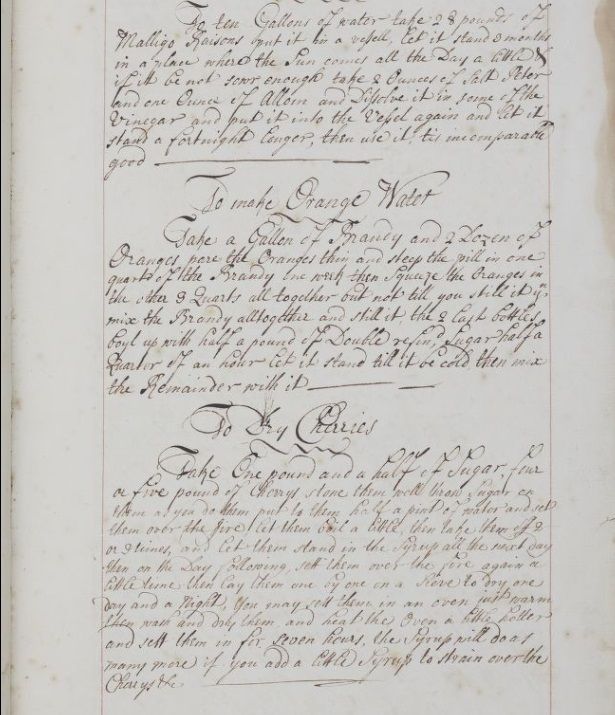 To ten Gallons of water take 28 pounds of
Malligo Raisons put it in a vessell, let it stand 3 months
in a place where the Sun comes all the Day a little &
if it be not sowr enough take 2 Ounces of Salt Peter
and one Ounce of Allom and Disolve it in some of the
Vinegar and put it into the Vessel again and let it
stand a fortnight longer, then use it, tis incomparable
good
To make Orange Water
Take a Gallon of Brandy and 2 Dozen of
Oranges pere the Oranges thin, and steep the pill in one
quart of the Brandy one week then Squeeze the Oranges in
the other 3 Quarts all together but not till you still it yn
mix the Brandy alltogether and still it, the 2 last bottles
boyl up with half a pound of Double refind Sugar half a
Quarter of an hour let it stand till it be cold then mix
the Remainder with it
To Dry Cherries
Take One pound and a half of Sugar, four
or five pound of Cherrys stone them well throw Sugar on
them as you do them put to them half a pint of water and set
them over the fire let them boil a little, then take them off 2
or 3 times, and let them stand in the Syrup all the next Day
then on the Day following, sett them over the fire again a
little time then lay them one by one on a Sieve to Dry, one
Day and a Night, You may sett them in an oven just warm
then wash and dry them, and heat the Oven a little hotter
and sett them in for seven hours, the Syrup will do as
many more if you add a little Syrup to strain over the
Cherrys &c